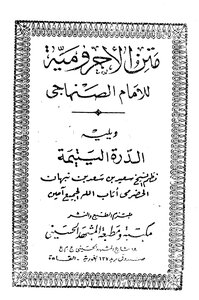 متن الأجرومية
للإمام الصنهاجي
ويليه
الدرة اليتيمة
نظم الشيخ سعيد بن سعد بن نبهان
الحضرمي أثاب الله الجميع آمين
ملتزم الطبع والنشر
مكتبة ومطبعة المشهد الحسيني